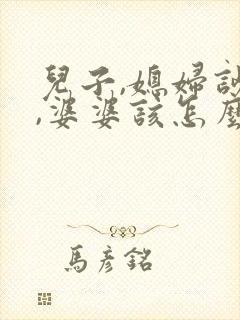 兒子,媳婦
,婆婆該怎麼
馬彥銘